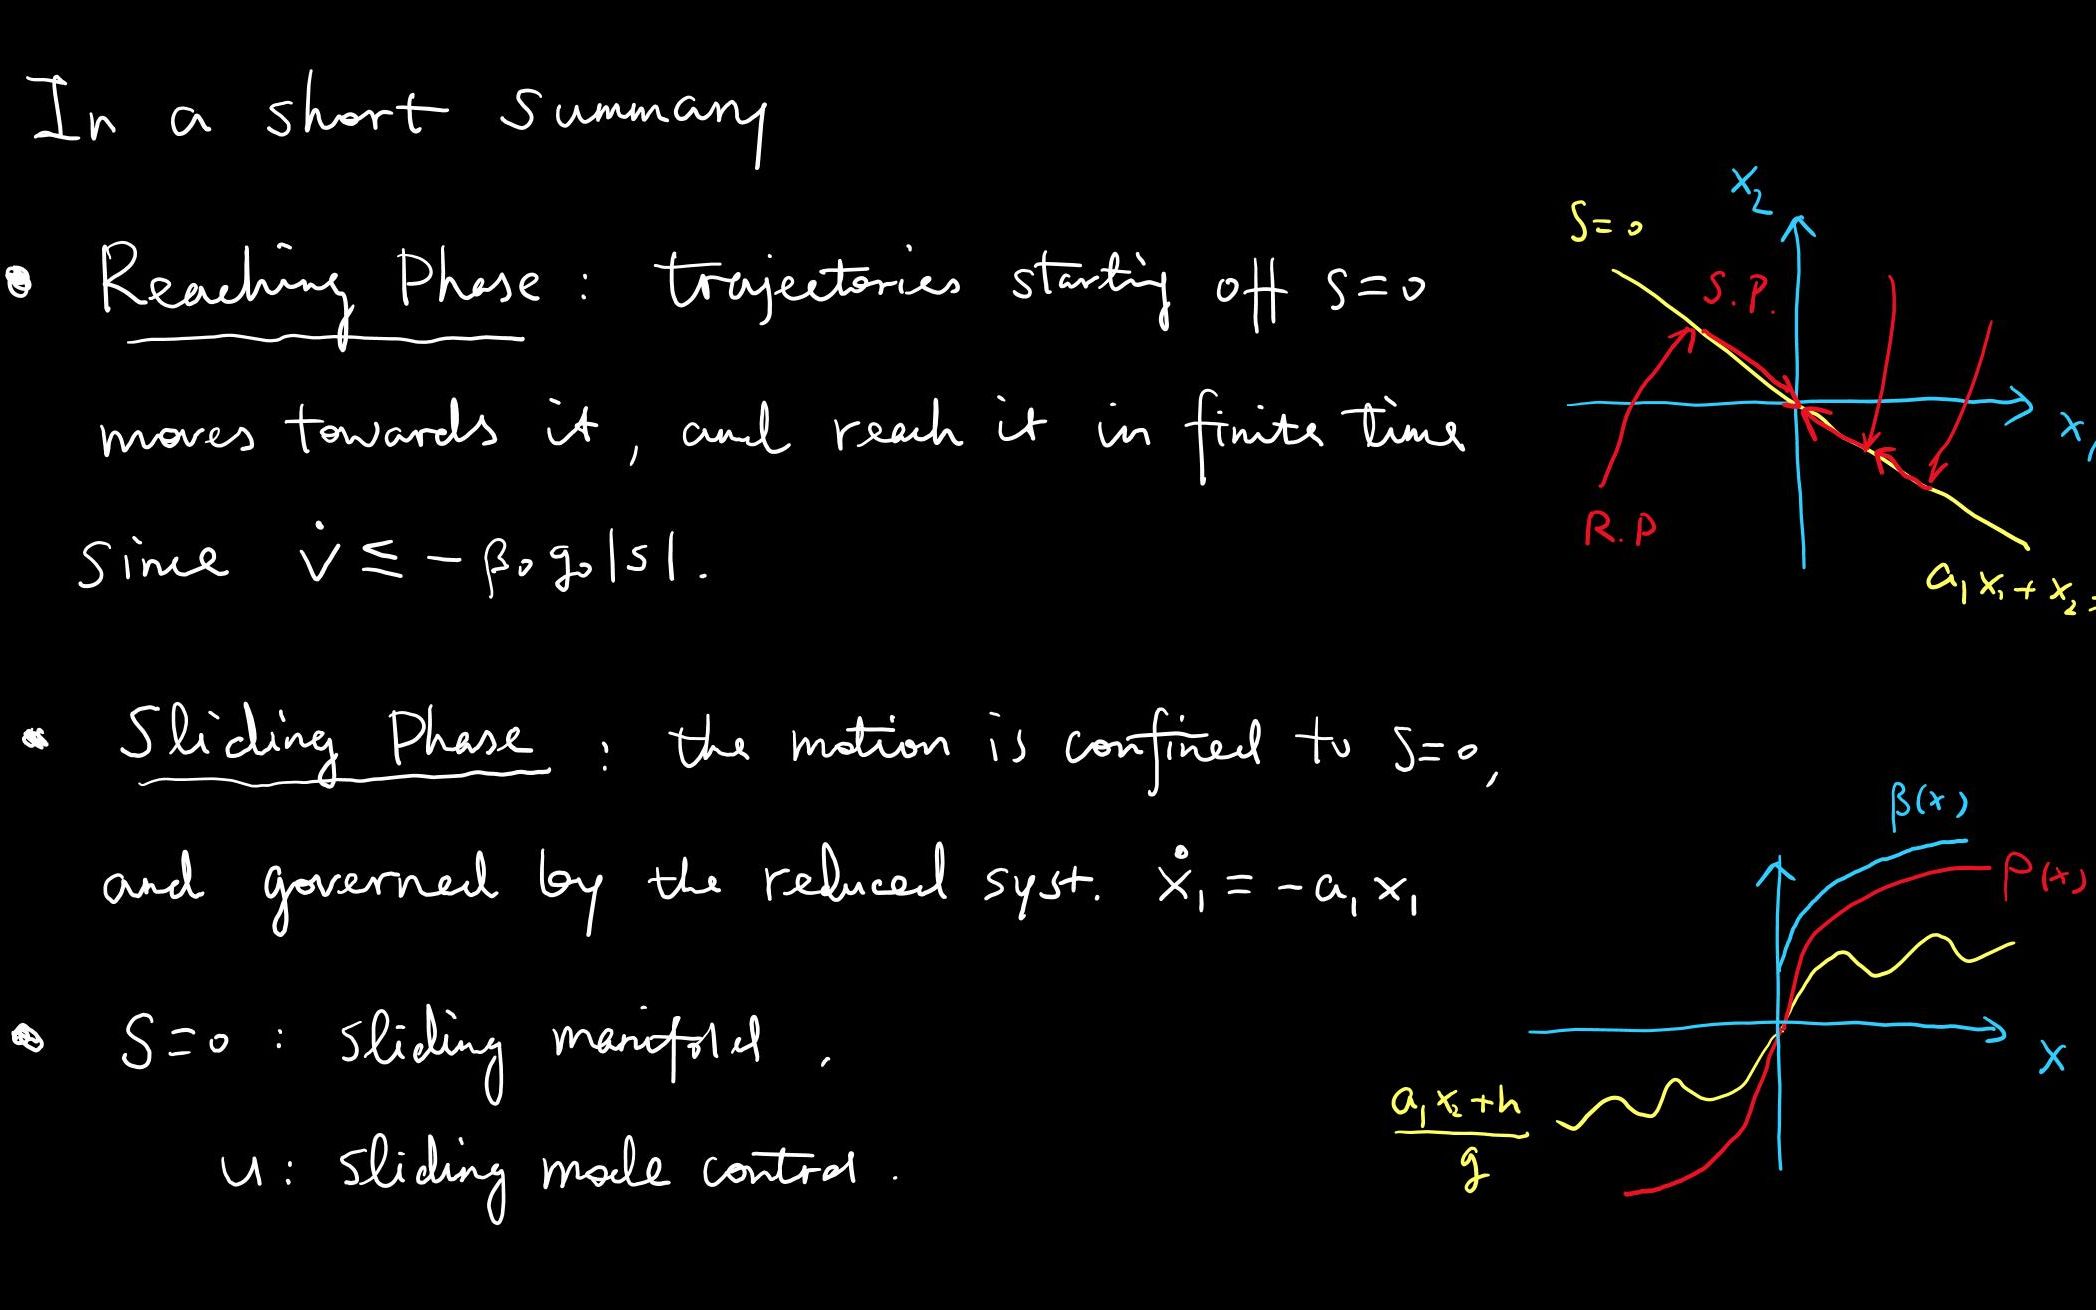 In a short summary
• Reaching Phase : trajectories starting off S=0
moves towards it, and reach it in finite time
since V̇ ≤ -β₀g₀|s|.
• Sliding Phase : the motion is confined to S=0,
and governed by the reduced syst. ẋ₁ = -a₁x₁
• S=0 : sliding manifold.
u: sliding mode control.
x₂
S=0
S.P.
x₁
R.P
a₁x₁+x₂=
β(x)
ρ(x)
x
a₁x₂+h
g